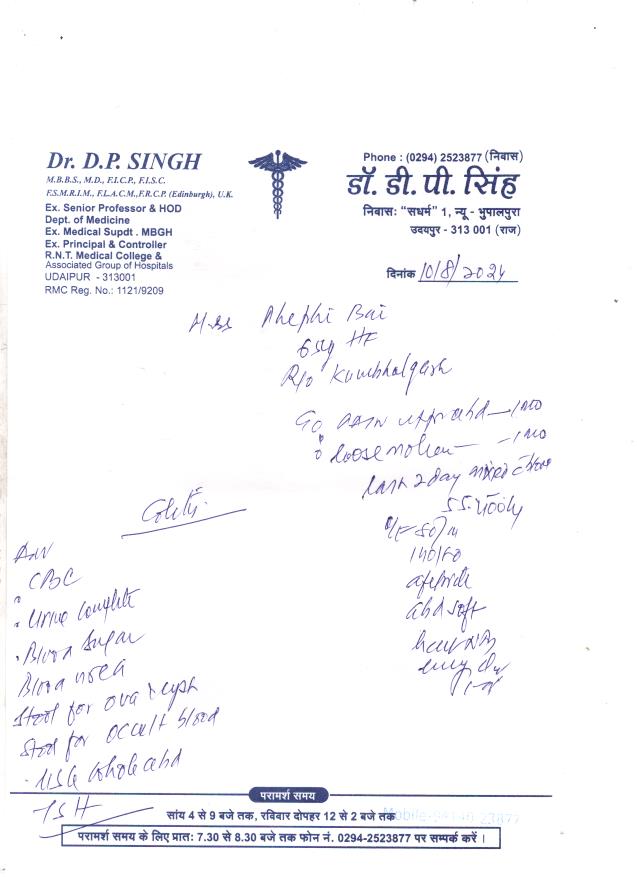 Dr. D.P. SINGH
M.B.B.S., M.D., F.I.C.P., F.I.S.C.
F.S.M.R.I.M., F.L.A.C.M.,F.R.C.P. (Edinburgh), U.K.
Ex. Senior Professor & HOD
Dept. of Medicine
Ex. Medical Supdt . MBGH
Ex. Principal & Controller
R.N.T. Medical College &
Associated Group of Hospitals
UDAIPUR - 313001
RMC Reg. No.: 1121/9209
Phone : (0294) 2523877 (निवास)
डॉ. डी. पी. सिंह
निवासः “सधर्म” 1, न्यू - भुपालपुरा
उदयपुर - 313 001 (राज)
दिनांक 10/8/2024
Bai
R/o Kumbhalgarh
loose motion — 1 mo
last 2 day mixed
55.400kg
80/m
140/80
afebrile
abd soft
Colitis
Adv
CBC
Urine Complete
Blood Sugar
Blood urea
Stool for ova & cyst
Stool for occult blood
USG whole abd
TSH
परामर्श समय
सांय 4 से 9 बजे तक, रविवार दोपहर 12 से 2 बजे तक
परामर्श समय के लिए प्रातः 7.30 से 8.30 बजे तक फोन नं. 0294-2523877 पर सम्पर्क करें ।